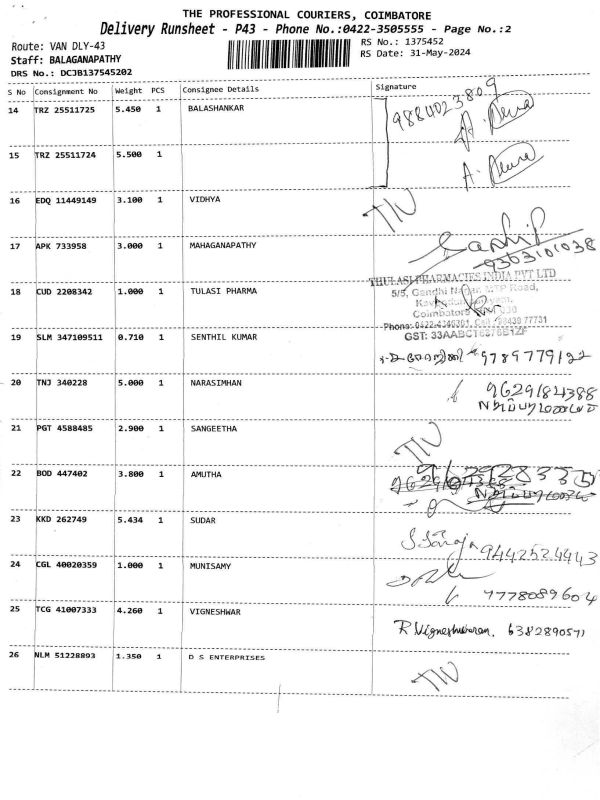 THE PROFESSIONAL COURIERS, COIMBATORE
Delivery Runsheet - P43 - Phone No.:0422-3505555 - Page No.:2
Route: VAN DLY-43
RS No.: 1375452
Staff: BALAGANAPATHY
RS Date: 31-May-2024
DRS No.: DCJB137545202
S No Consignment No Weight PCS Consignee Details Signature
14 TRZ 25511725 5.450 1 BALASHANKAR 9884023809
15 TRZ 25511724 5.500 1
16 EDQ 11449149 3.100 1 VIDHYA
17 APK 733958 3.000 1 MAHAGANAPATHY 9363101038
THULASI PHARMACIES INDIA PVT LTD
18 CUD 2208342 1.000 1 TULASI PHARMA
5/5, Gandhi Nagar, MTP Road,
Coimbatore
Phone: 0422-4340301, Cell: 98430 77731
GST: 33AABCT6376B1ZF
19 SLM 347109511 0.710 1 SENTHIL KUMAR 9789779122
20 TNJ 340228 5.000 1 NARASIMHAN 9629184388
21 PGT 4588485 2.900 1 SANGEETHA
22 BOD 447402 3.800 1 AMUTHA
23 KKD 262749 5.434 1 SUDAR 9442524443
24 CGL 40020359 1.000 1 MUNISAMY 7778089604
25 TCG 41007333 4.260 1 VIGNESHWAR R.Vigneshwaran. 6382890571
26 NLM 51228893 1.350 1 D S ENTERPRISES